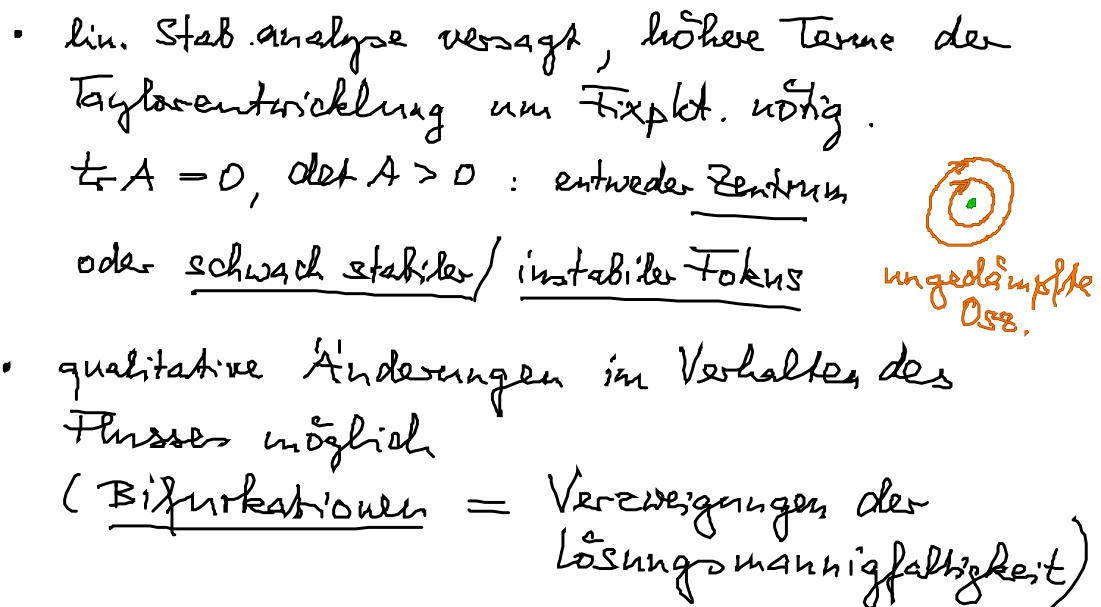 • lin. Stab.analyse versagt, höhere Terme der
Taylorentwicklung um Fixpkt. nötig.
tr A = 0, det A > 0 : entweder Zentrum
oder schwach stabiler / instabiler Fokus
ungedämpfte
Osz.
• qualitative Änderungen im Verhalten des
Flusses möglich
( Bifurkationen = Verzweigungen der
Lösungsmannigfaltigkeit)